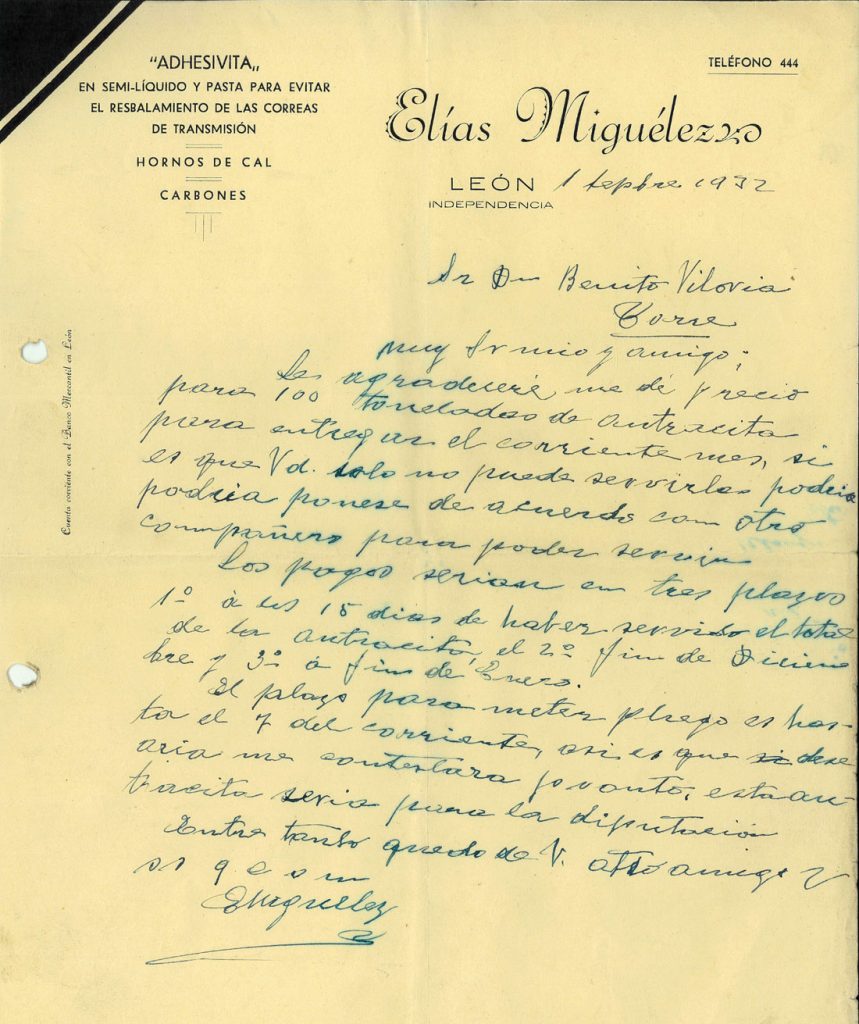 "ADHESIVITA„
EN SEMI-LÍQUIDO Y PASTA PARA EVITAR
EL RESBALAMIENTO DE LAS CORREAS
DE TRANSMISIÓN
HORNOS DE CAL
CARBONES
TELÉFONO 444
Elías Miguélez
LEÓN 1 sepbre 1932
INDEPENDENCIA
Cuenta corriente con el Banco Mercantil en León
Sr Dn Benito Viloria
Torre
muy Sr mio y amigo;
Le agradeceré me dé precio
para 100 toneladas de antracita
para entregar el corriente mes, si
es que Vd. solo no puede servirlas podria
podria ponese de acuerdo con otro
compañero para poder servir
Los pagos serian en tres plazos
1º á los 15 dias de haber servido el total
de la antracita, el 2º fin de Diciem
bre y 3º á fin de Enero.
El plazo para meter pliego es has-
ta el 7 del corriente, asi es que si dese
aria me contestara pronto, esta an-
tracita seria para la diputación
Entre tanto quedo de V. atto amigo y
ss q e s m
EMiguelez